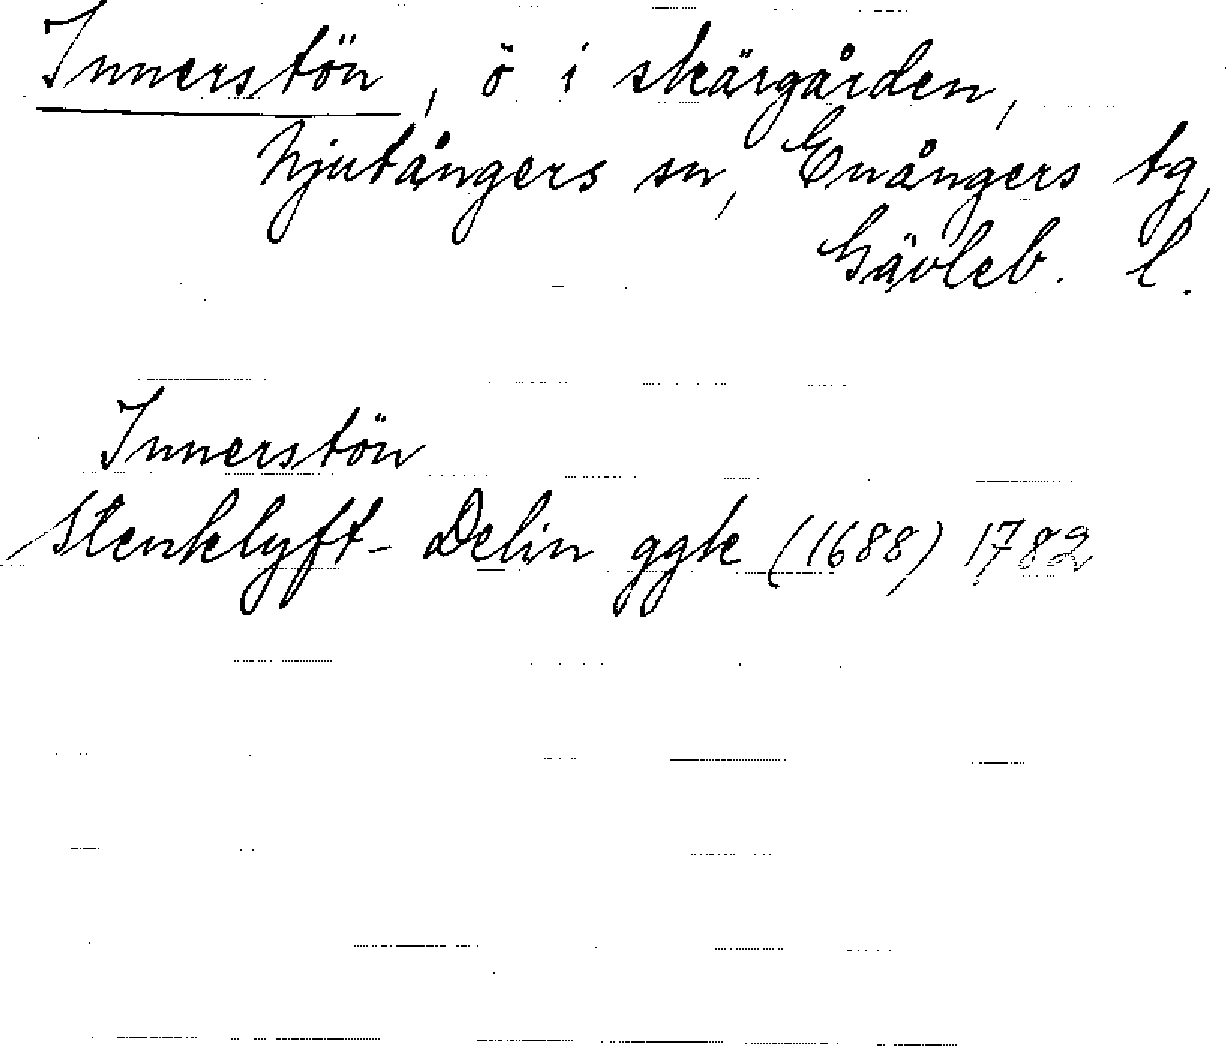 Innerstön, ö i skärgården,
Njutångers sn, Enångers tg,
Gävleb. l.
Innerstön
Stenklyft-Delin ggk (1688) 1782